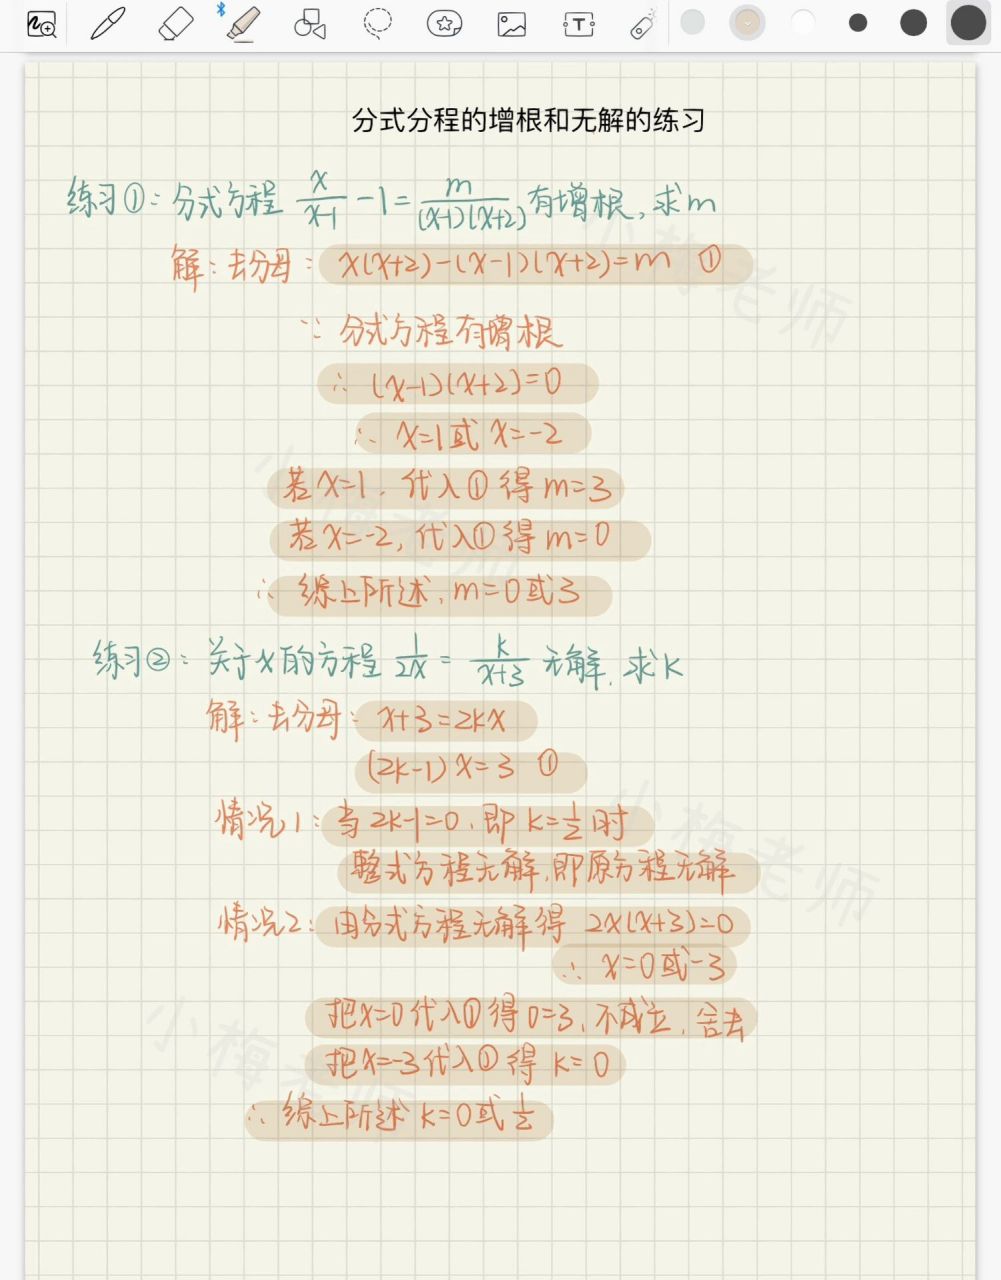 分式分程的增根和无解的练习
练习①：分式方程 x/(x-1) -1= m/((x-1)(x+2)) 有增根，求m
解：去分母：x(x+2)-(x-1)(x+2)=m ①
∵ 分式方程有增根
∴ (x-1)(x+2)=0
∴ x=1或 x=-2
若x=1，代入①得 m=3
若x=-2，代入①得 m=0
∴ 综上所述，m=0或3
练习②：关于x的方程 1/2x = k/(x+3) 无解，求k
解：去分母：x+3=2kx
(2k-1)x=3 ①
情况1：当2k-1=0，即 k=1/2时
整式方程无解，即原方程无解
情况2：由分式方程无解得 2x(x+3)=0
∴ x=0或-3
把x=0代入①得 0=3，不成立，舍去
把x=-3代入①得 k=0
∴ 综上所述 k=0或1/2
小梅老师
小梅老师
小梅老师
小梅老师